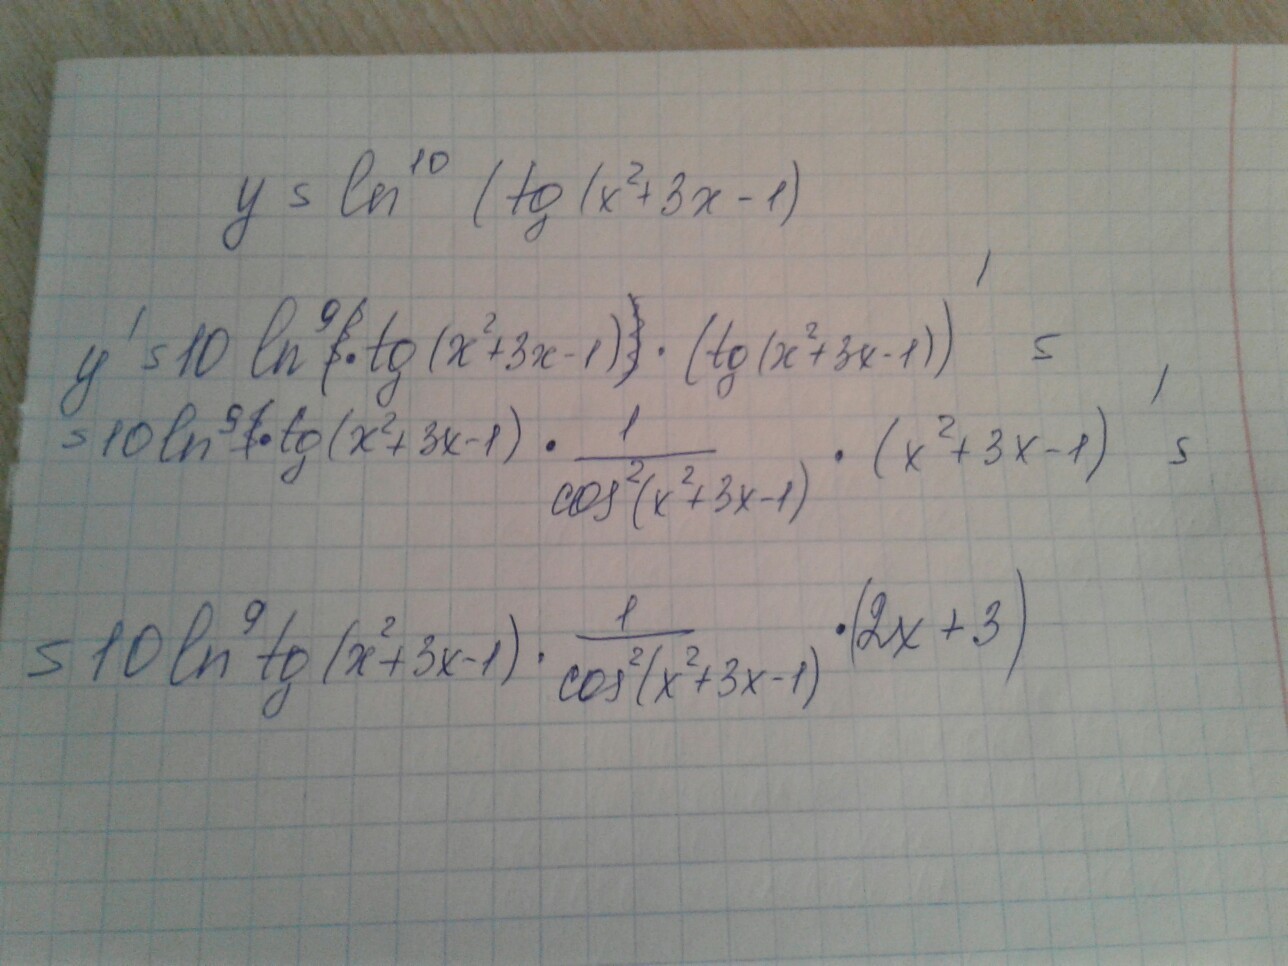 y = ln¹⁰ (tg(x²+3x-1)
y' = 10 ln⁹ · tg(x²+3x-1) · (tg(x²+3x-1))' =
= 10 ln⁹ · tg(x²+3x-1) · 1/cos²(x²+3x-1) · (x²+3x-1)' =
= 10 ln⁹ tg(x²+3x-1) · 1/cos²(x²+3x-1) · (2x+3)